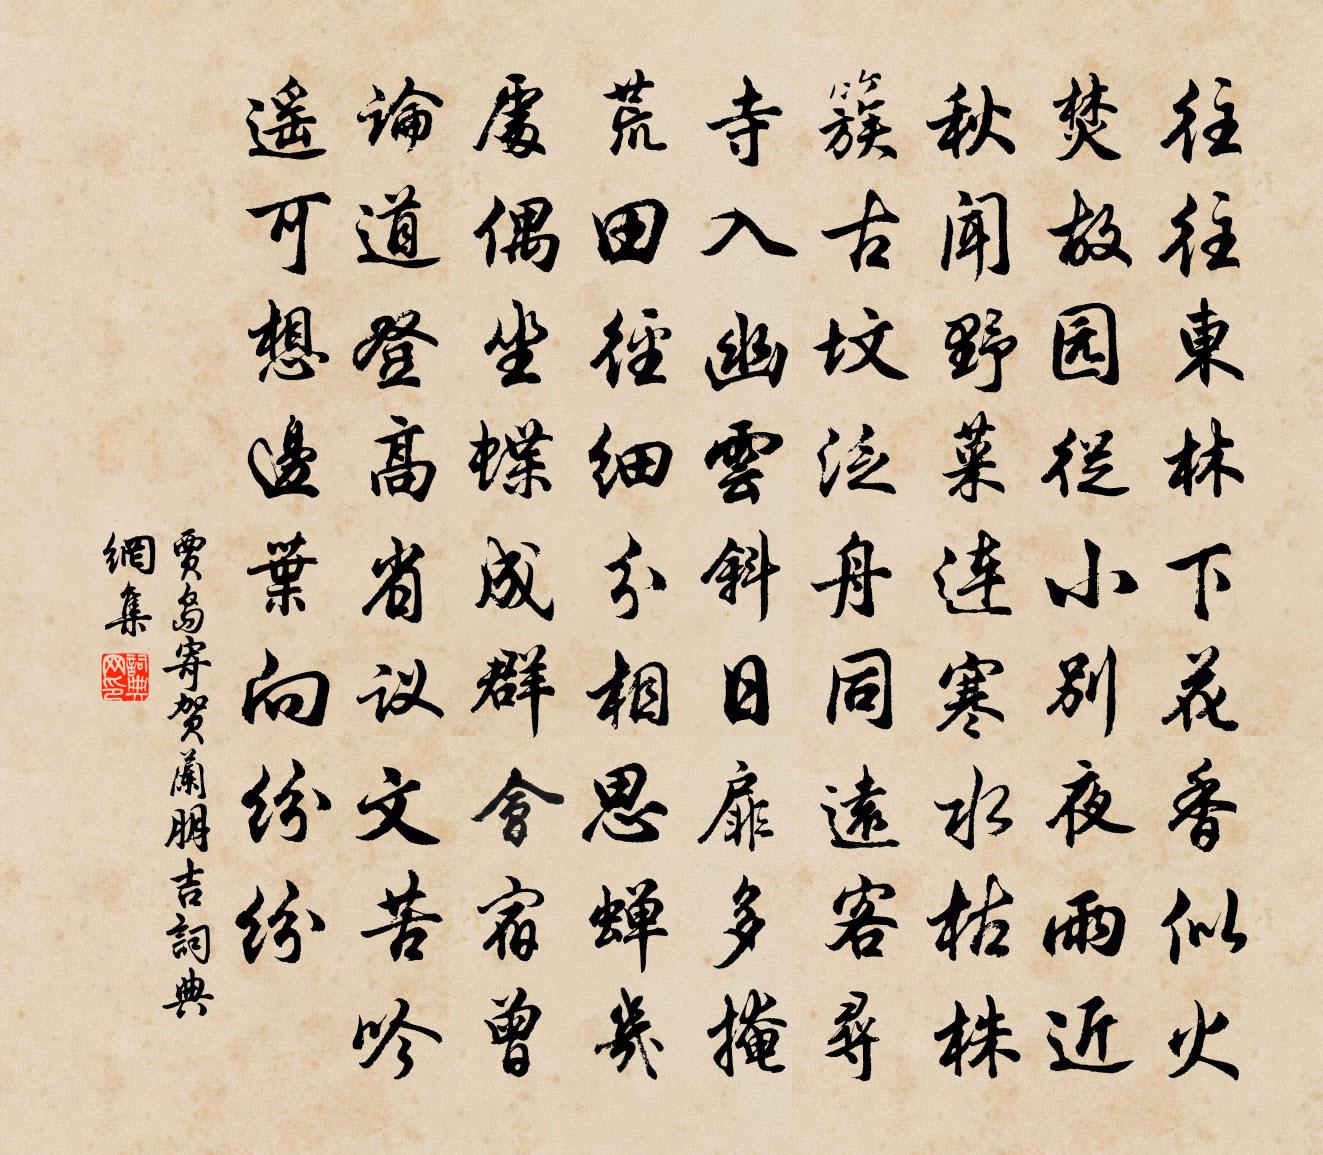 往往東林下花香似火
焚故园從小别夜雨近
秋闻野菜连寒水枯株
簇古坟泛舟同遠客尋
寺入幽雲斜日扉多掩
荒田徑细分相思蝉幾
處偶坐蝶成群會宿曾
論道登高省议文苦吟
遥可想邊葉向纷纷
贾岛寄贺蘭朋吉詞典
網集
詞典网印